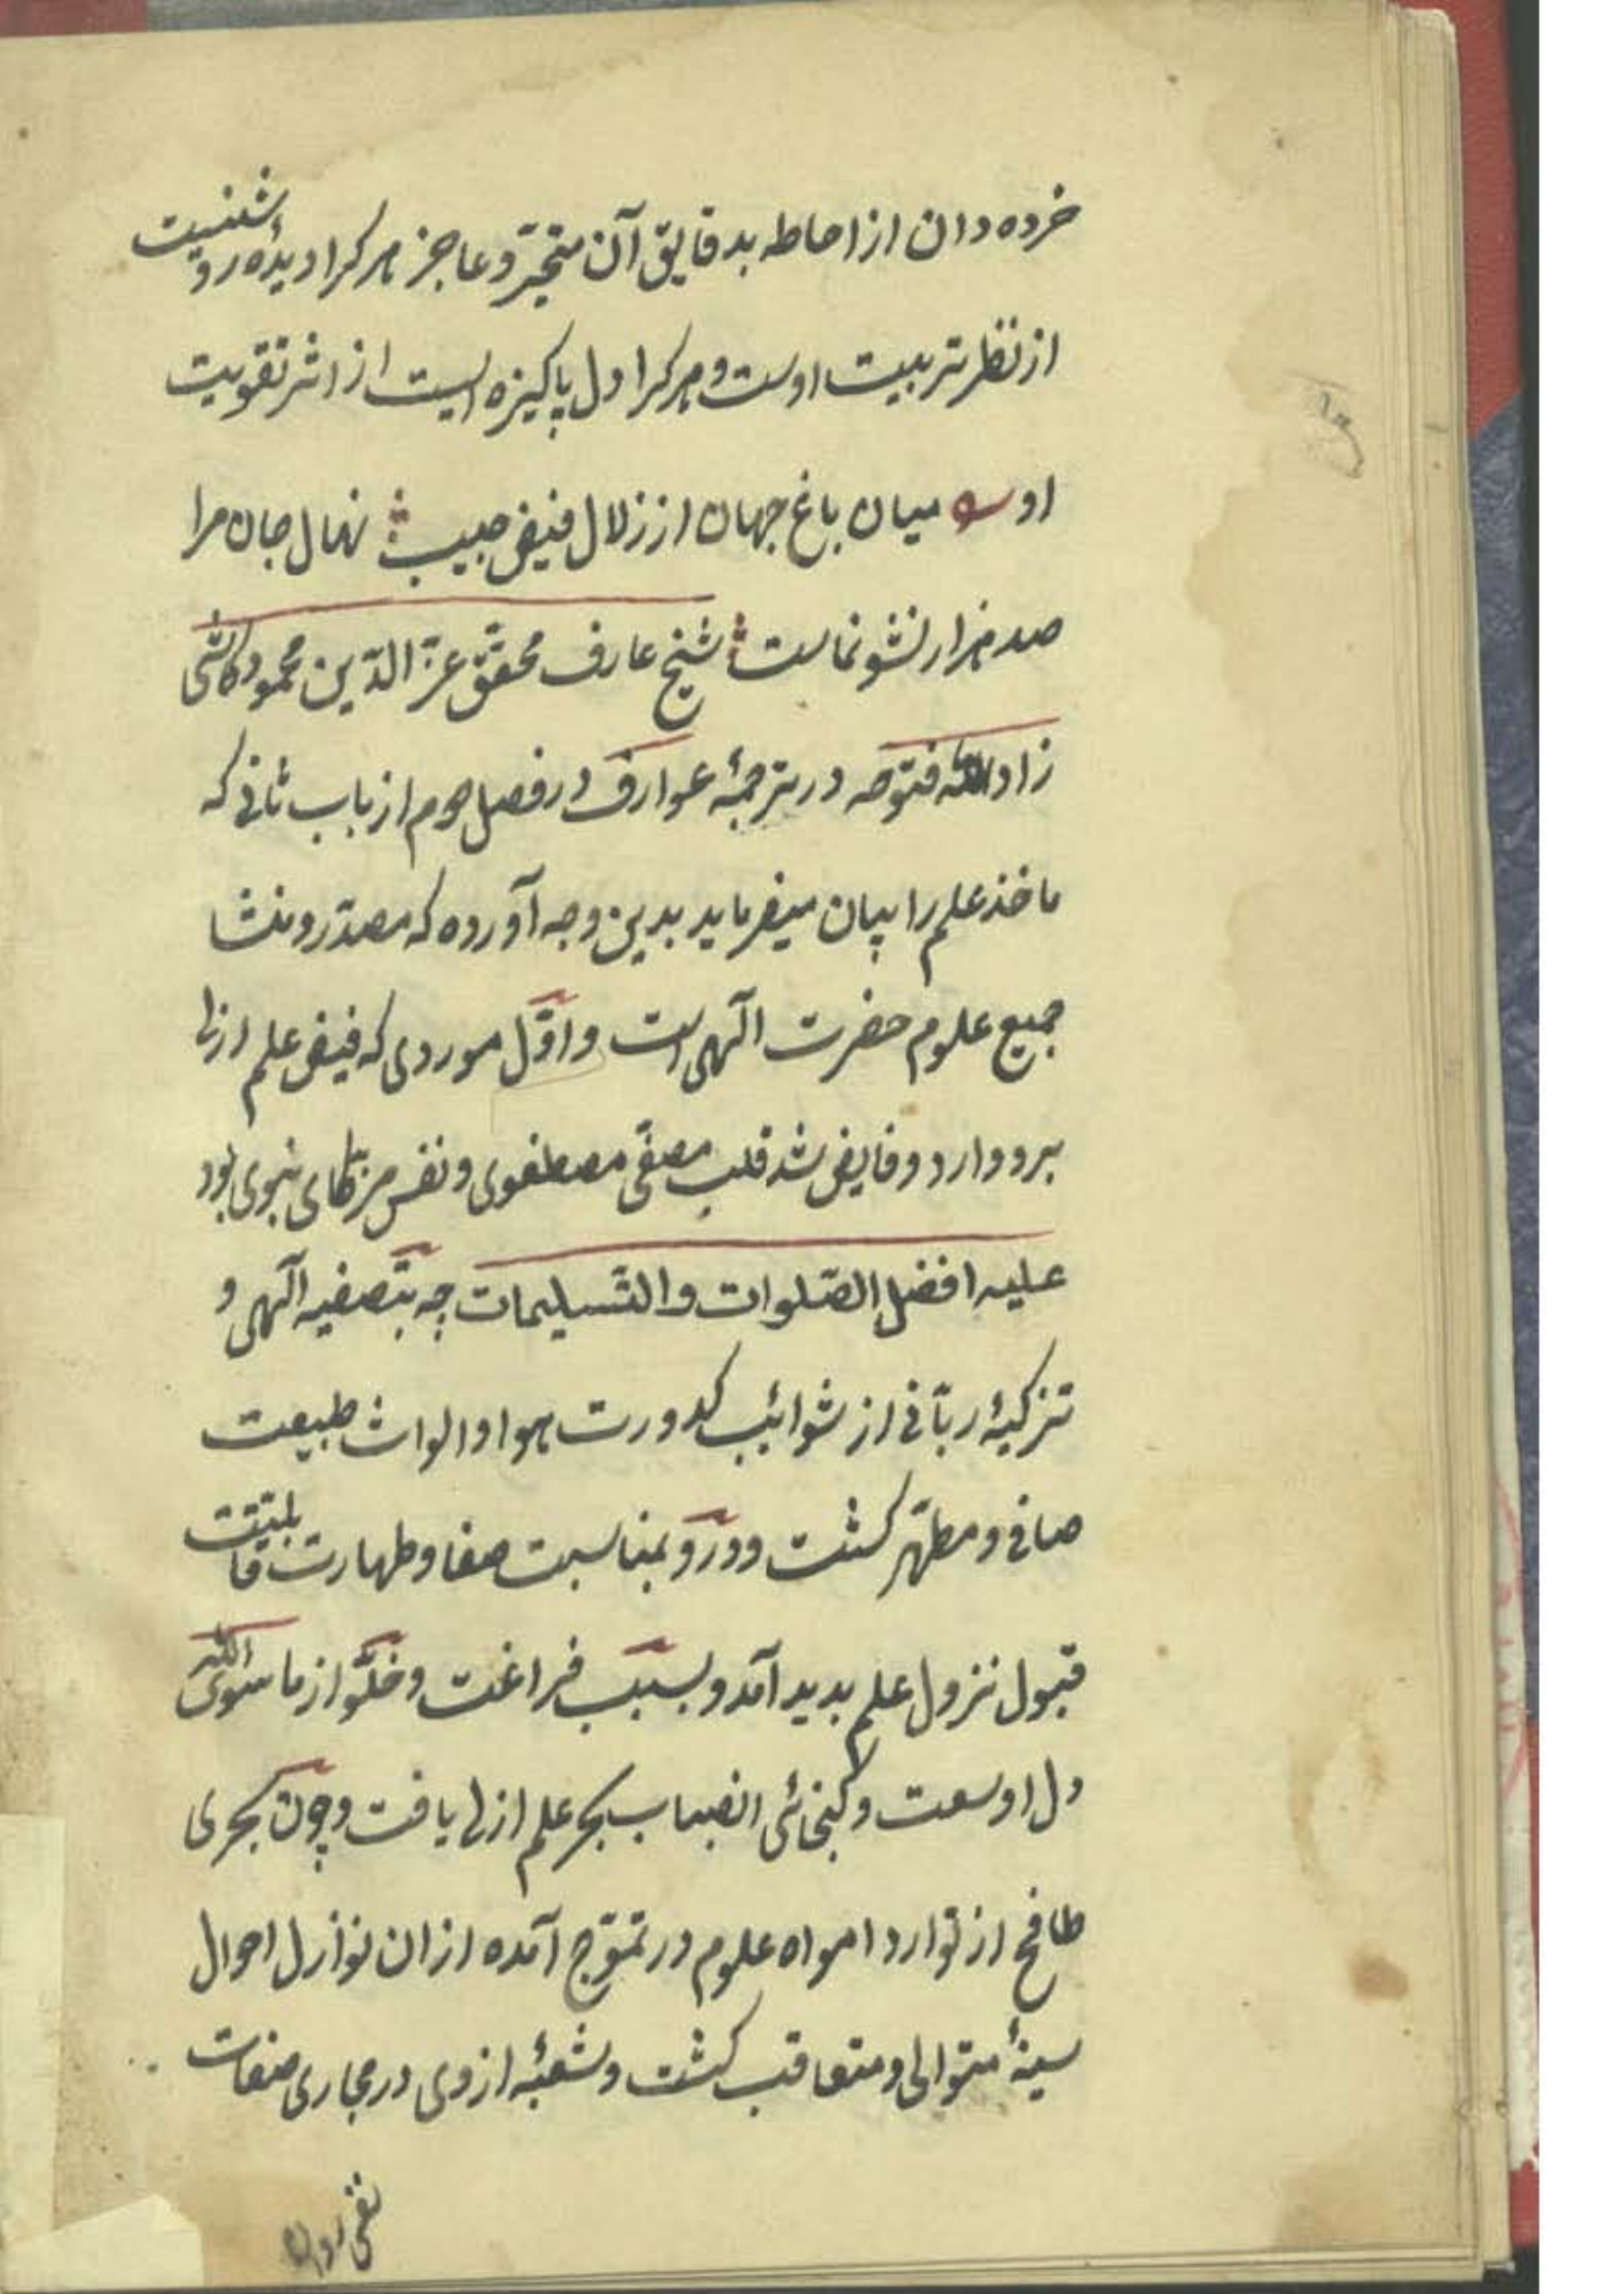 خرده دان از احاطه بدقایق آن متحیّر و عاجز هر کرا دیدهٔ روشنیست
از نظر تربیت اوست و هر کرا دل پاکیزه ایست از اثر تقویت
او میان باغ جهان از زلال فیض حبیب نهال جان مرا
صد هزار نشو نماست شیخ عارف محقق عزّ الدّین محمود کاشی
زاد الله فتوحه در ترجمهٔ عوارف در فصل دوم از باب ثانی که
ماخذ علم را بیان میفرماید بدین وجه آورده که مصدر و منشا
جمیع علوم حضرت الهی است و اوّل موردی که فیض علم ازلی
برو وارد و فایض شد قلب مصفّی مصطفوی و نفس مزکّای نبوی بود
علیه افضل الصّلوات والتّسلیمات چه بتصفیه الهی و
تزکیهٔ ربّانی از شوائب کدورت هوا و الواث طبیعت
صافی و مطهّر کشت و درو بمناسبت صفا و طهارت قابلیّت
قبول نزول علم بدید آمد و بسبب فراغت و خلوّ از ما سوی الله
دل او سعت و کنجائی انصباب بحر علم ازلی یافت و چون بحری
طافح از توارد امواه علوم در تموّج آمده از ان نوازل احوال
سینهٔ متوالی و متعاقب کشت و شعبهٔ از وی در مجاری صفات